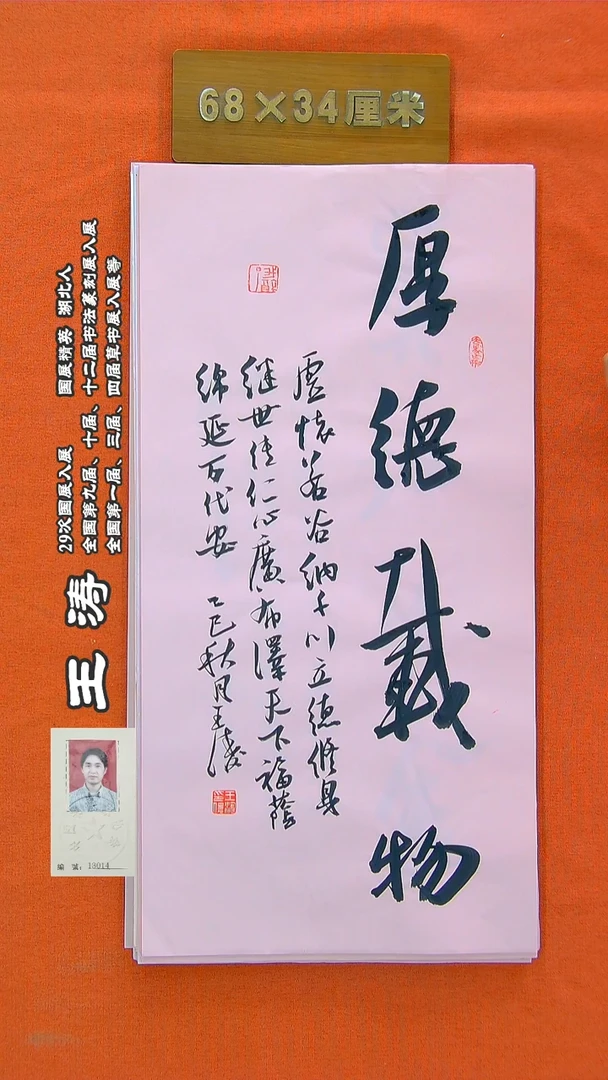 68×34厘米
厚德载物
虚怀若谷纳千川立德修身
继世传仁心广布泽天下福荫
绵延万代安 乙巳秋月王涛
王涛
29次国展入展 国展精英 湖北人
全国第九届、十届、十二届书法篆刻展入展
全国第一届、三届、四届草书展入展等
编号：13014